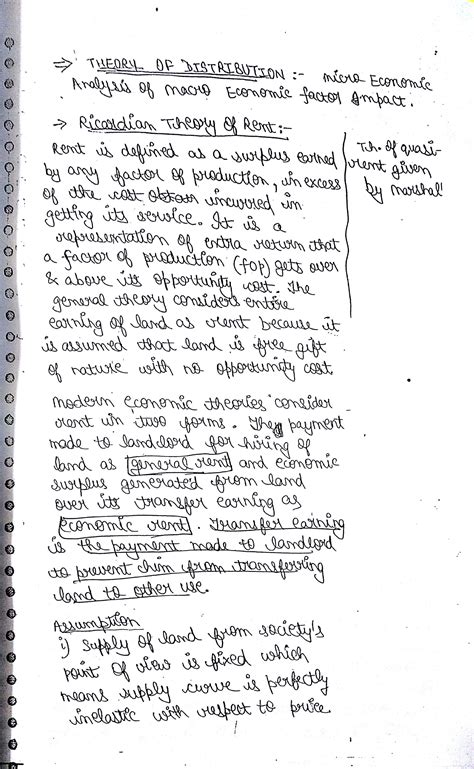 ⇒ THEORY OF DISTRIBUTION :- Micro Economic
Analysis of macro Economic factor Impact.
→ Ricardian Theory of Rent:-
Rent is defined as a surplus earned
by any factor of production, in excess
of the cost obtain incurred in
getting its service. It is a
representation of extra return that
a factor of production (fop) gets over
& above its opportunity cost. The
general theory considers entire
earning of land as rent because it
is assumed that land is free gift
of nature with no opportunity cost
Th. of quasi-
rent given
by marshal'
Modern economic theories consider
rent in two forms. The payment
made to landlord for hiring of
land as general rent and economic
surplus generated from land
over its transfer earning as
economic rent. Transfer earning
is the payment made to landlord
to prevent him from transferring
land to other use.
Assumption
i) Supply of land from society's
point of view is fixed which
means supply curve is perfectly
inelastic with respect to price